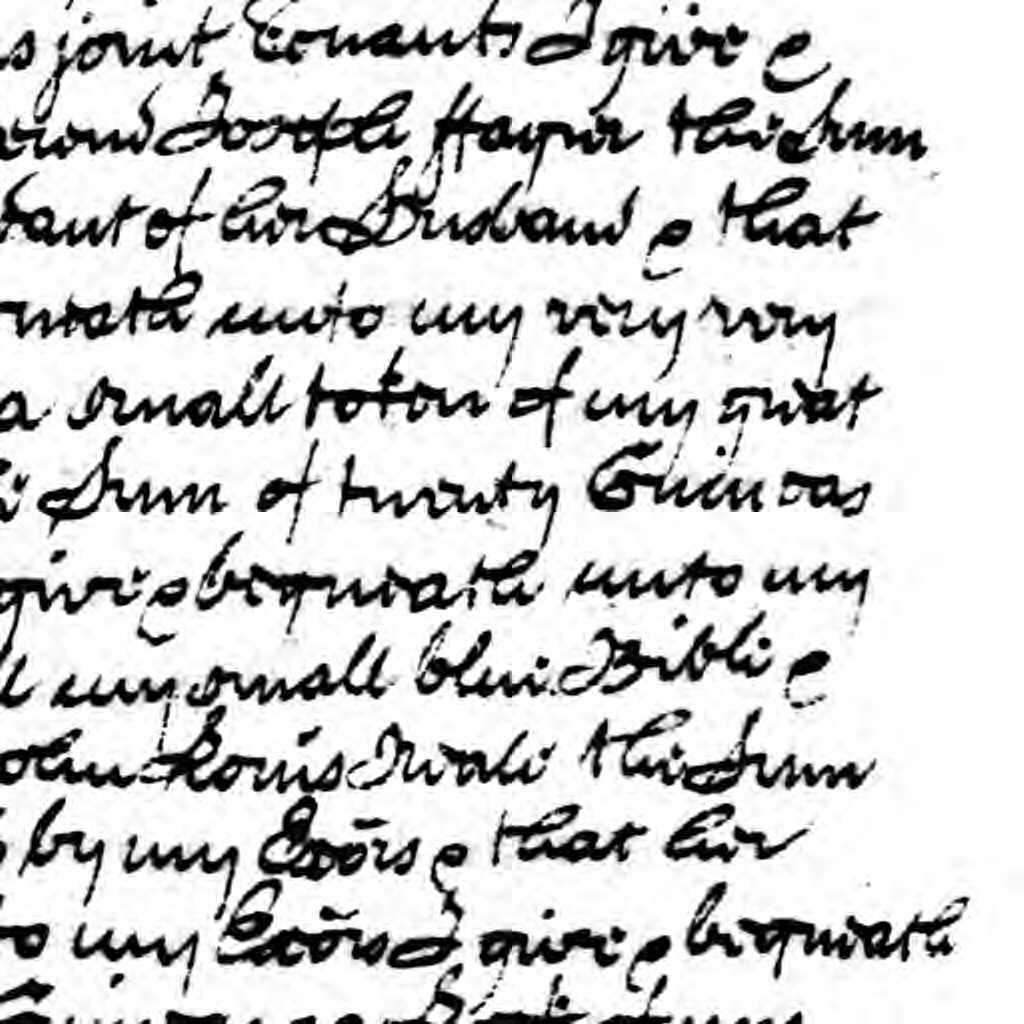 s joint Tenants I give &
Joseph Harper the Sum
of her Husband & that
unto my very very
a small token of my great
Sum of twenty Guineas
give & bequeath unto my
my small blue Bible &
the Sum
by my Exõrs & that her
to my Exõrs I give & bequeath